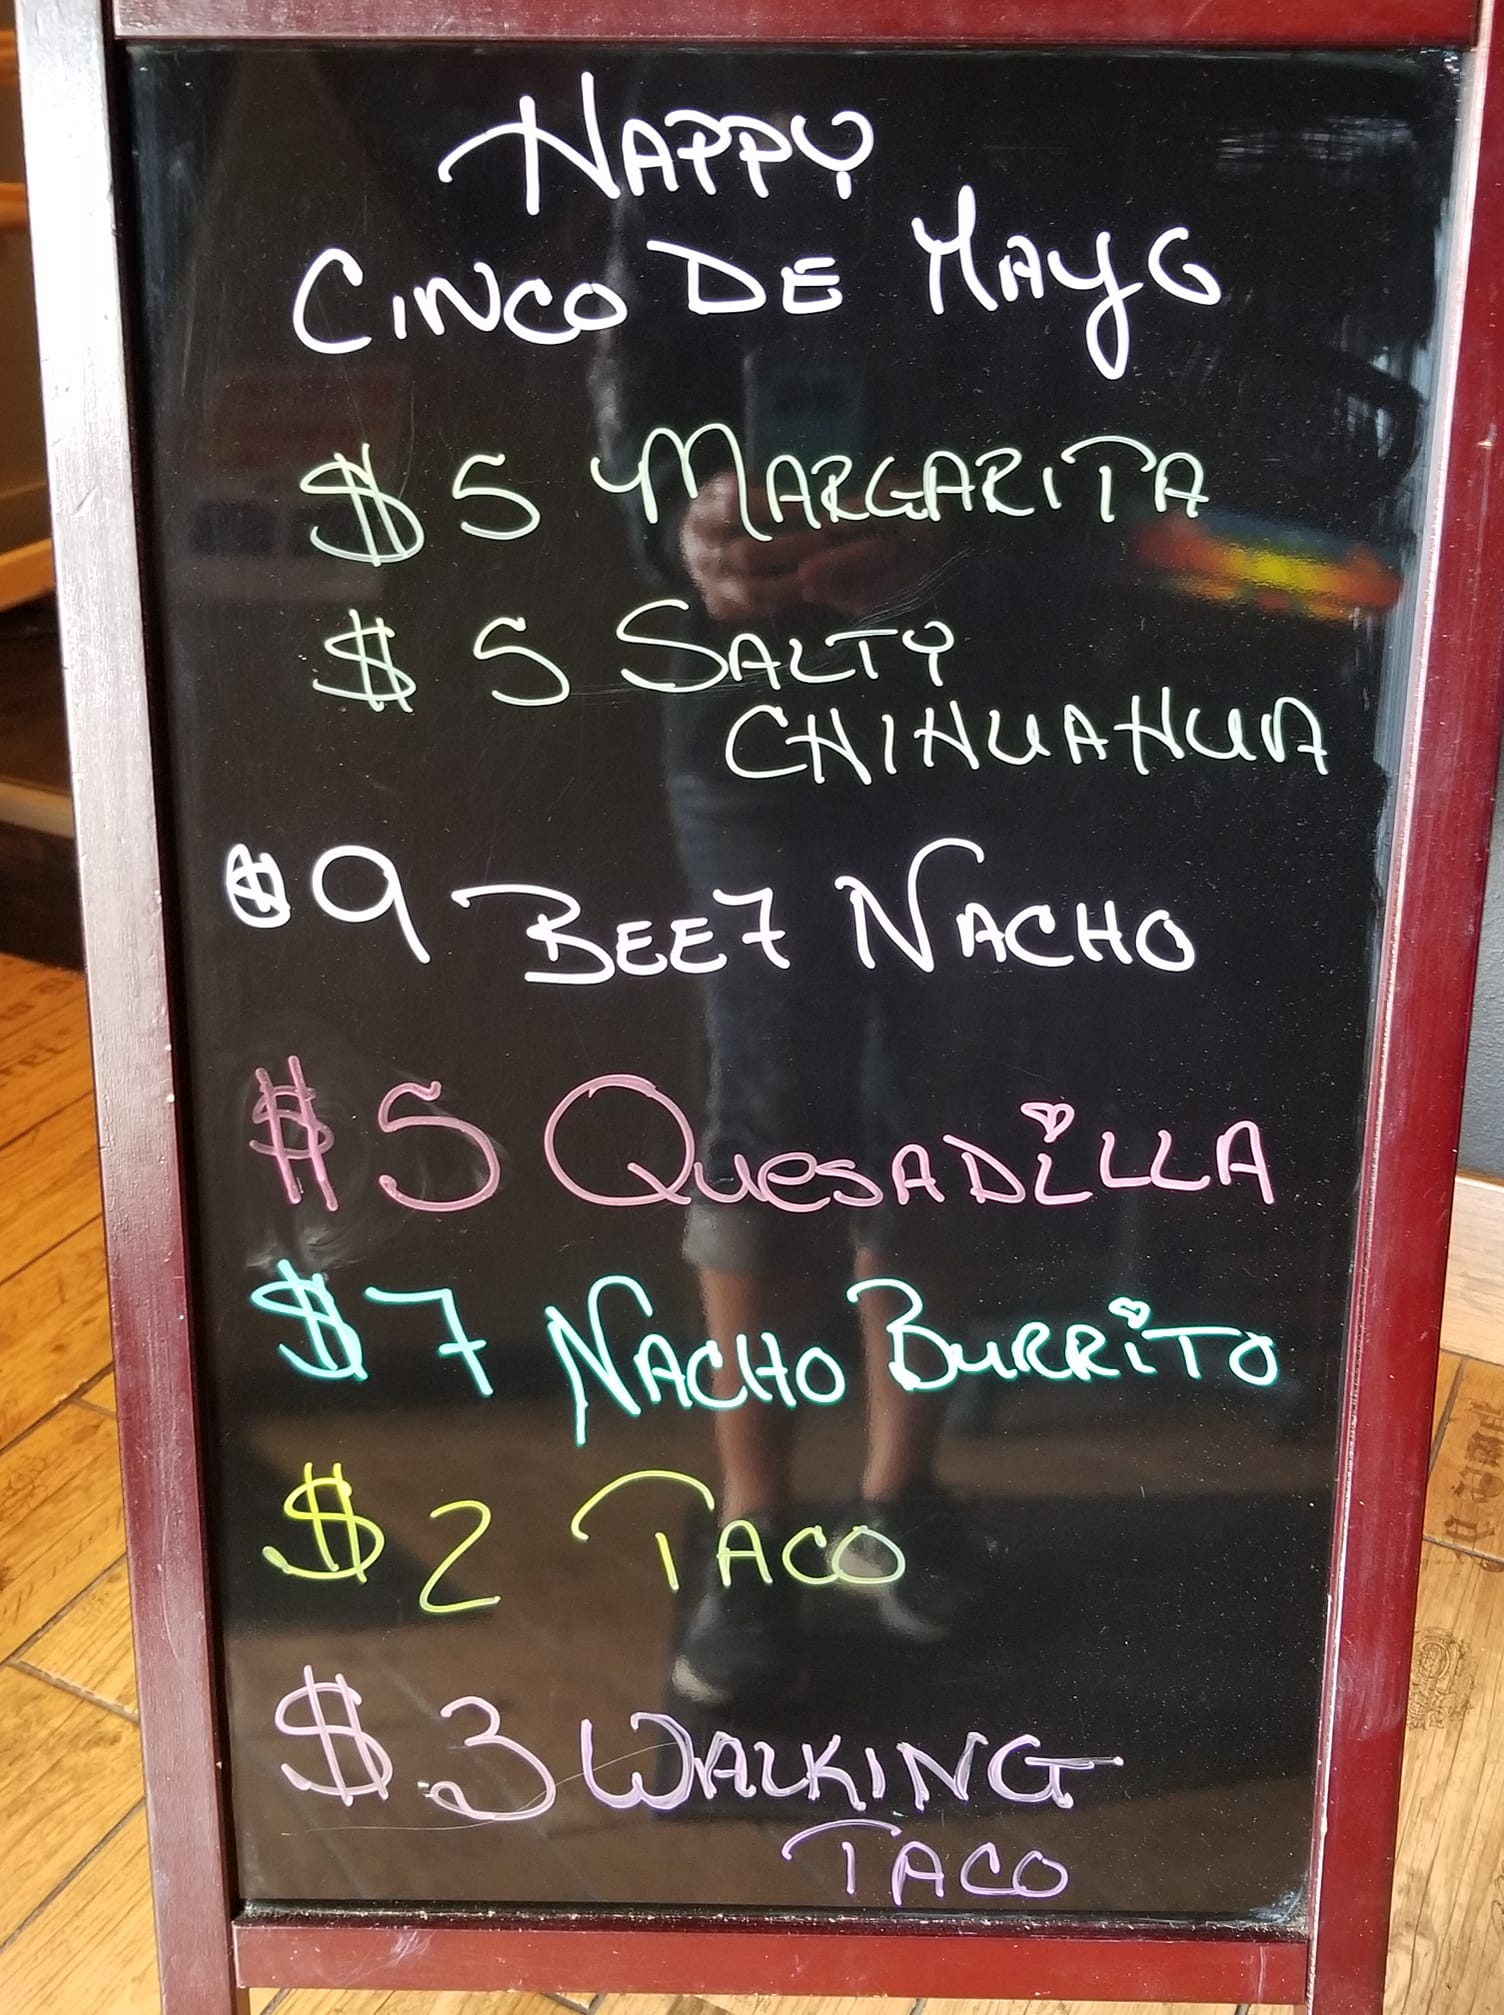 HAPPY
CINCO DE MAYO
$5 MARGARITA
$5 SALTY
CHIHUAHUA
$9 BEEF NACHO
$5 QUESADiLLA
$7 NACHO BURRiTO
$2 TACO
$3 WALKING
TACO